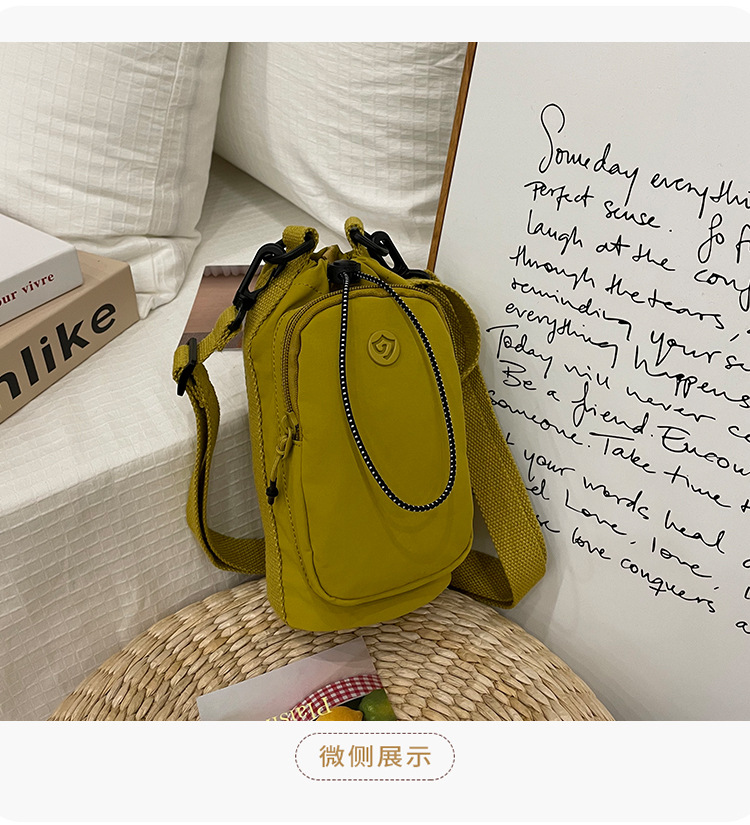 our vivre
nlike
Someday everythi
Perfect sense. So f
laugh at the conf
through the tears,
reminding yourse
everything happens
Today will never c
Be a friend. Encou
someone. Take time t
your words heal a
Love, love,
love conquers a
Plaisi
微侧展示